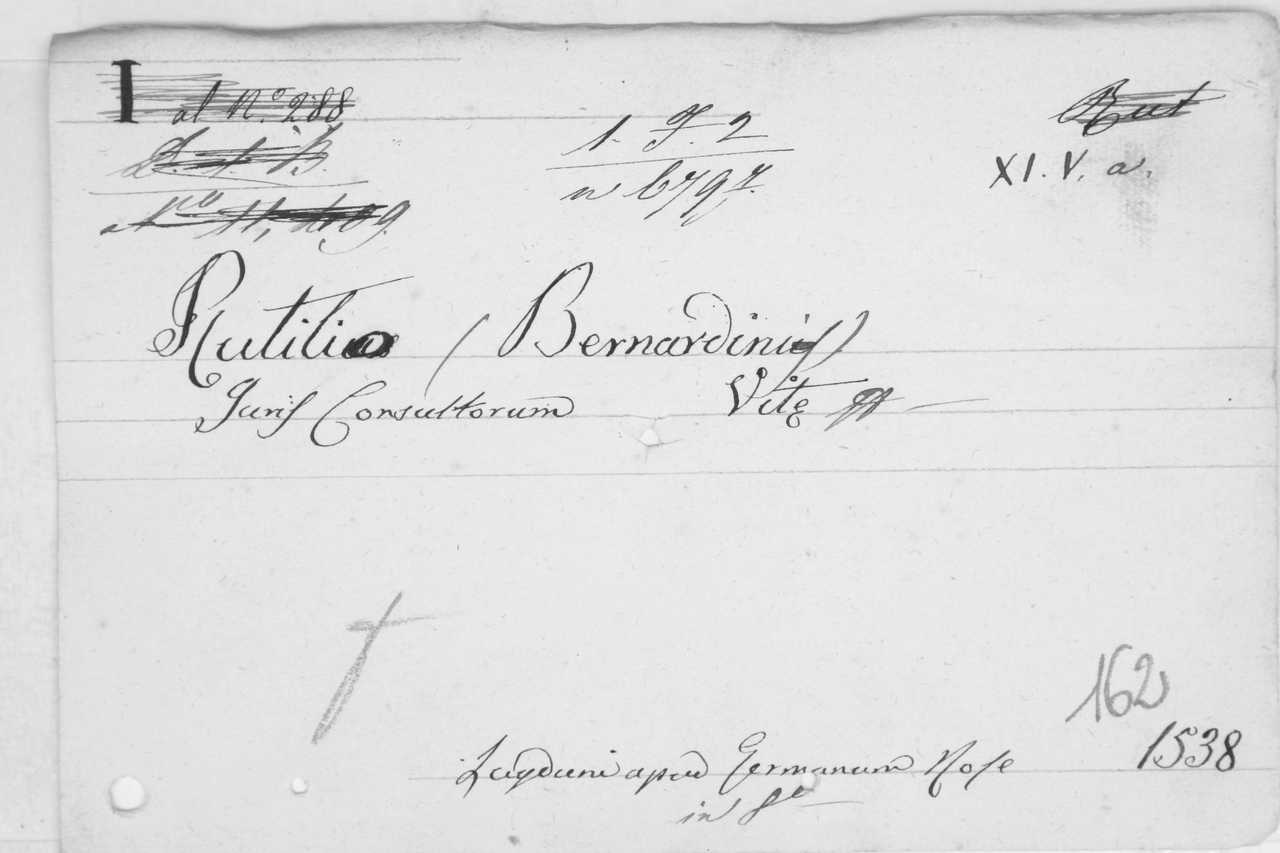 I al N.º 288
1. F. 2
Rut
n 6797.
XI. V. a.
Rutilio (Bernardini)
Juris Consultorum Vitę
162
1538
Lugduni apud Germanum Rose
in 8º